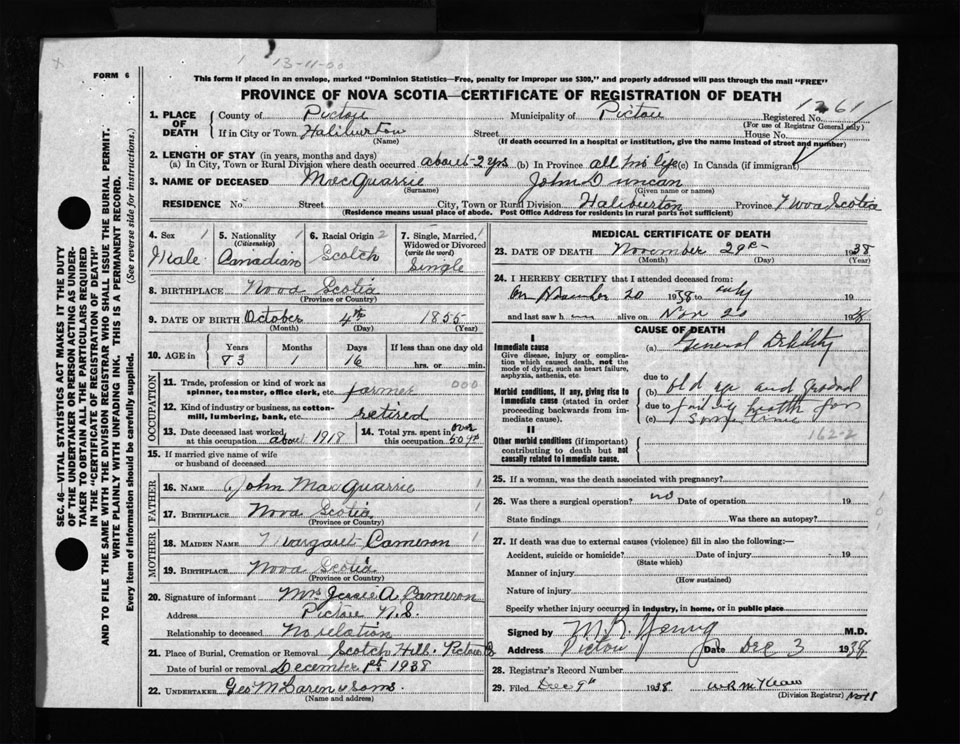 13-11-00
FORM 6
This form if placed in an envelope, marked "Dominion Statistics—Free, penalty for improper use $300," and properly addressed will pass through the mail "FREE"
PROVINCE OF NOVA SCOTIA—CERTIFICATE OF REGISTRATION OF DEATH
1261
SEC. 46—VITAL STATISTICS ACT MAKES IT THE DUTY
OF THE UNDERTAKER OR PERSON ACTING AS UNDER-
TAKER TO OBTAIN ALL THE PARTICULARS REQUIRED
IN THE "CERTIFICATE OF REGISTRATION OF DEATH"
AND TO FILE THE SAME WITH THE DIVISION REGISTRAR WHO SHALL ISSUE THE BURIAL PERMIT.
WRITE PLAINLY WITH UNFADING INK. THIS IS A PERMANENT RECORD.
Every item of information should be carefully supplied. (See reverse side for instructions.)
1. PLACE OF DEATH County of Pictou Municipality of Pictou Registered No.
(For use of Registrar General only)
If in City or Town Haliburton Street House No.
(Name) (If death occurred in a hospital or institution, give the name instead of street and number)
2. LENGTH OF STAY (in years, months and days)
(a) In City, Town or Rural Division where death occurred about 2 yrs (b) In Province all his life (c) In Canada (if immigrant)
3. NAME OF DECEASED MacQuarrie John Duncan
(Surname) (Given name or names)
RESIDENCE No Street City, Town or Rural Division Haliburton Province Nova Scotia
(Residence means usual place of abode. Post Office Address for residents in rural parts not sufficient)
4. Sex 1
Male
5. Nationality 1
(Citizenship)
Canadian
6. Racial Origin 2
Scotch
7. Single, Married, 1
Widowed or Divorced
(write the word)
Single
8. BIRTHPLACE Nova Scotia
(Province or Country)
9. DATE OF BIRTH October 4th 1855
(Month) (Day) (Year)
10. AGE in Years Months Days If less than one day old
83 1 16 hrs. or min.
OCCUPATION
11. Trade, profession or kind of work as
spinner, teamster, office clerk, etc. farmer 000
12. Kind of industry or business, as cotton-
mill, lumbering, bank, etc. retired
13. Date deceased last worked
at this occupation about 1918
14. Total yrs. spent in over
this occupation 50 yrs
15. If married give name of wife
or husband of deceased
FATHER
16. NAME John MacQuarrie 1
17. BIRTHPLACE Nova Scotia 1
(Province or Country)
MOTHER
18. MAIDEN NAME Margaret Cameron 1
19. BIRTHPLACE Nova Scotia
(Province or Country)
20. Signature of informant Mrs Jessie A Cameron
Address Pictou N.S.
Relationship to deceased No relation
21. Place of Burial, Cremation or Removal Scotch Hill. Pictou
Date of burial or removal December 1st 1938
22. UNDERTAKER Geo McLaren & Sons.
(Name and address)
MEDICAL CERTIFICATE OF DEATH
23. DATE OF DEATH November 29 1938
(Month) (Day) (Year)
24. I HEREBY CERTIFY that I attended deceased from:
On November 20 1938 to only 19
and last saw h alive on Nov 20 1938
CAUSE OF DEATH
I
Immediate cause
Give disease, injury or complica-
tion which caused death, not the
mode of dying, such as heart failure,
asphyxia, asthenia, etc.
(a) General Debility
due to
Morbid conditions, if any, giving rise to
immediate cause (stated in order
proceeding backwards from im-
mediate cause).
(b) old age and gradual
due to
(c) failing health for
some time
162-2
II
Other morbid conditions (if important)
contributing to death but not
causally related to immediate cause.
25. If a woman, was the death associated with pregnancy?
26. Was there a surgical operation? no Date of operation 19
State findings Was there an autopsy?
27. If death was due to external causes (violence) fill in also the following:—
Accident, suicide or homicide? Date of injury 19
(State which)
Manner of injury
(How sustained)
Nature of injury
Specify whether injury occurred in industry, in home, or in public place
Signed by M.D.
Address Pictou Date Dec 3 1938
28. Registrar's Record Number
29. Filed Dec 9th 1938
(Division Registrar)